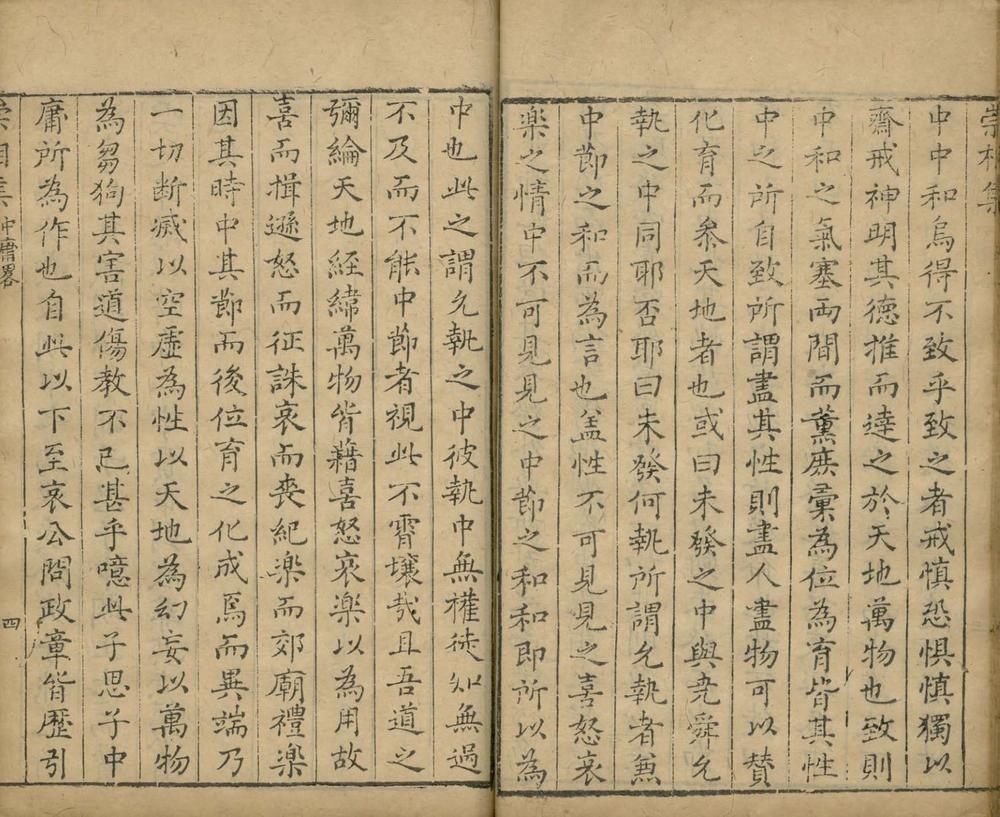 崇相集
中中和烏得不致乎致之者戒慎恐惧慎獨以
齋戒神明其德推而達之於天地萬物也致則
中和之氣塞两間而薰庶彙為位為育皆其性
中之所自致所謂盡其性則盡人盡物可以贊
化育而叅天地者也或曰未發之中與尭舜允
執之中同耶否耶曰未發何執所謂允執者兼
中節之和而為言也盖性不可見見之喜怒哀
楽之情中不可見見之中節之和和即所以為
中也此之謂允執之中彼執中無權徒知無過
不及而不能中節者視此不霄壤哉且吾道之
彌綸天地経緯萬物皆藉喜怒哀楽以為用故
喜而揖遜怒而征誅哀而喪紀楽而郊廟禮楽
因其時中其節而後位育之化成焉而異端乃
一切断滅以空虛為性以天地為幻妄以萬物
為芻狗其害道傷教不已甚乎噫此子思子中
庸所為作也自此以下至哀公問政章皆歷引
崇相集 中庸畧 四